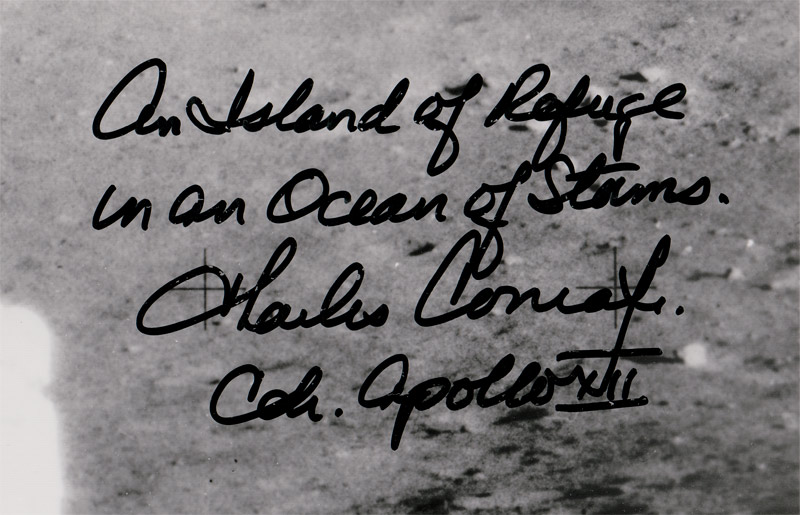 An Island of Refuge
in an Ocean of Storms.
Charles Conrad Jr.
Cdr. Apollo XII